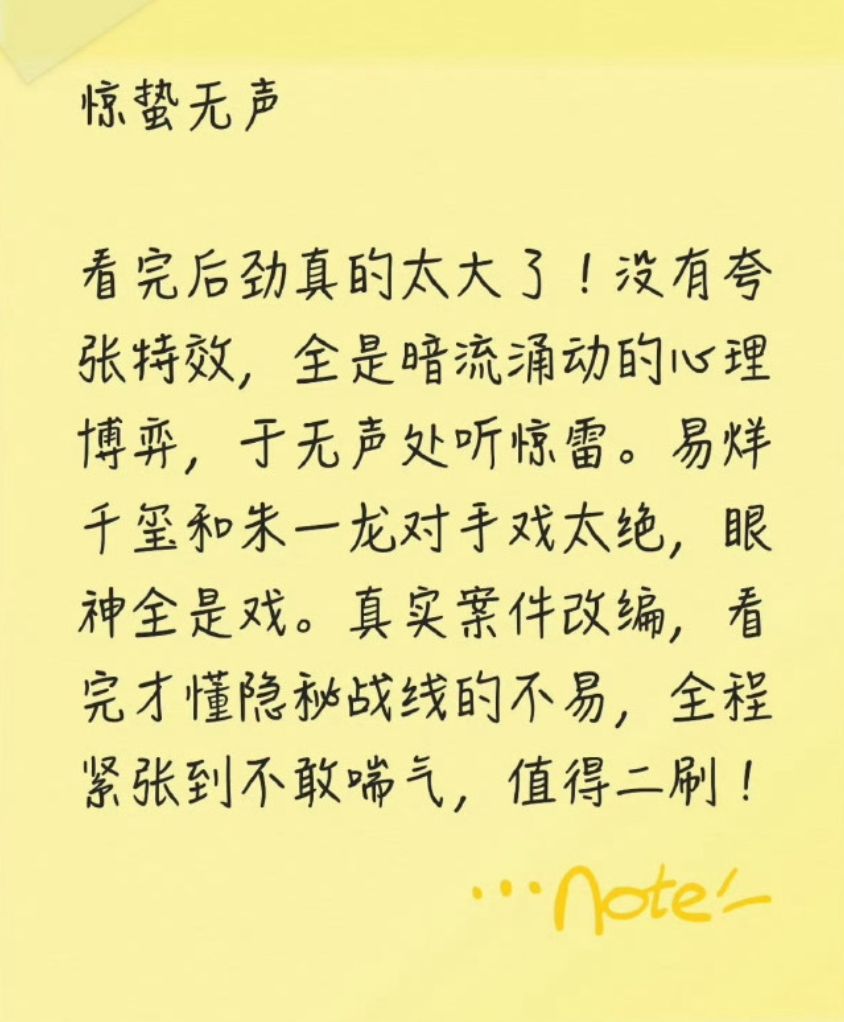 惊蛰无声
看完后劲真的太大了！没有夸
张特效，全是暗流涌动的心理
博弈，于无声处听惊雷。易烊
千玺和朱一龙对手戏太绝，眼
神全是戏。真实案件改编，看
完才懂隐秘战线的不易，全程
紧张到不敢喘气，值得二刷！
...note!